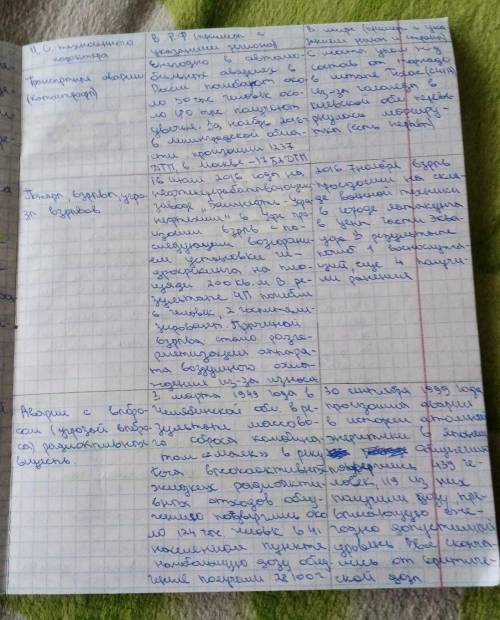 Ч.С. техногенного
характера
В РФ (пример с
указанием региона)
В мире (пример с ука-
занием
Транспортная авария
(катастроф)
ежегодно в автомо-
бильных авариях в
погибает око
ло 30 тыс человек око-
ло 180 тыс получают
За ноябрь 2016г
в Ленинградской обла-
сти произошли 1237
ДТП, в Москве -
состав от торнадо
в штате Техас (США)
из-за гололёда в
Киевской обл. перевер-
нулась маршру-
тка (есть жертвы)
Пожары, взрывы, угро-
за взрывов
16 июля 2016 года на
нефтеперерабатывающем
заводе "Башнефть-Уфа-
нефтехим" в Уфе про-
изошел взрыв с по-
следующим возгорани-
ем установки ги-
дрокрекинга на пло-
щади 200 кв.м. В ре-
зультате ЧП погибли
6 человек, 2 госпитали-
зированы. Причиной
взрыва стало разге-
рметизации аппара-
та воздушного охла-
ждения из-за износа
2016 7 ноября взрыв
произошел на скла-
де военной техники
в городе
в цент части Эква-
дора. В результате
погиб 1 военнослужа-
щий, еще 4 получи-
ли ранения
Аварии с выбро-
сом (угрозой выбро-
са) радиоактивных
веществ.
3 марта 1949 года в
Челябинской обл. в ре-
зультате массово-
го сброса комбина-
том «Маяк» в реку
Теча высокоактивных
жидких радиоакти-
вных отходов облу-
чению подверглись око
ло 124 тыс человек в 41
населенном пункте
Наибольшую дозу облу-
чения получили 28 100 ч
30 сентября 1999 года
произошла авария
в истории атомной
энергетики в Японии
облучению
подверглись 439 че-
ловек, 119 из них
получили дозу, пре-
вышающую еже-
годно допустимый
уровень. Двое сконча-
лись от критиче-
ской дозы